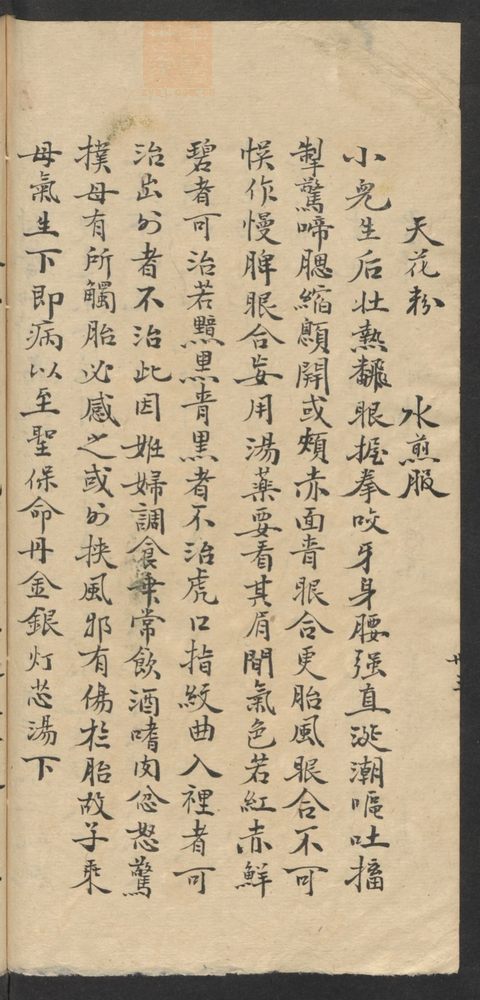 天花粉　水煎服
小兒生后壮熱飜眼握拳咬牙身腰强直涎潮嘔吐搐
掣驚啼腮縮顖開或頰赤面青眼合更胎風眼合不可
悮作慢脾眼合妄用湯藥要看其眉間氣色若紅赤鮮
碧者可治若黯黑青黑者不治虎口指紋曲入裡者可
治出外者不治此因姙婦調食乖常飲酒嗜肉忿怒驚
撲母有所觸胎必感之或外挾風邪有傷於胎故子乘
母氣生下即病以至聖保命丹金銀灯芯湯下
廿三